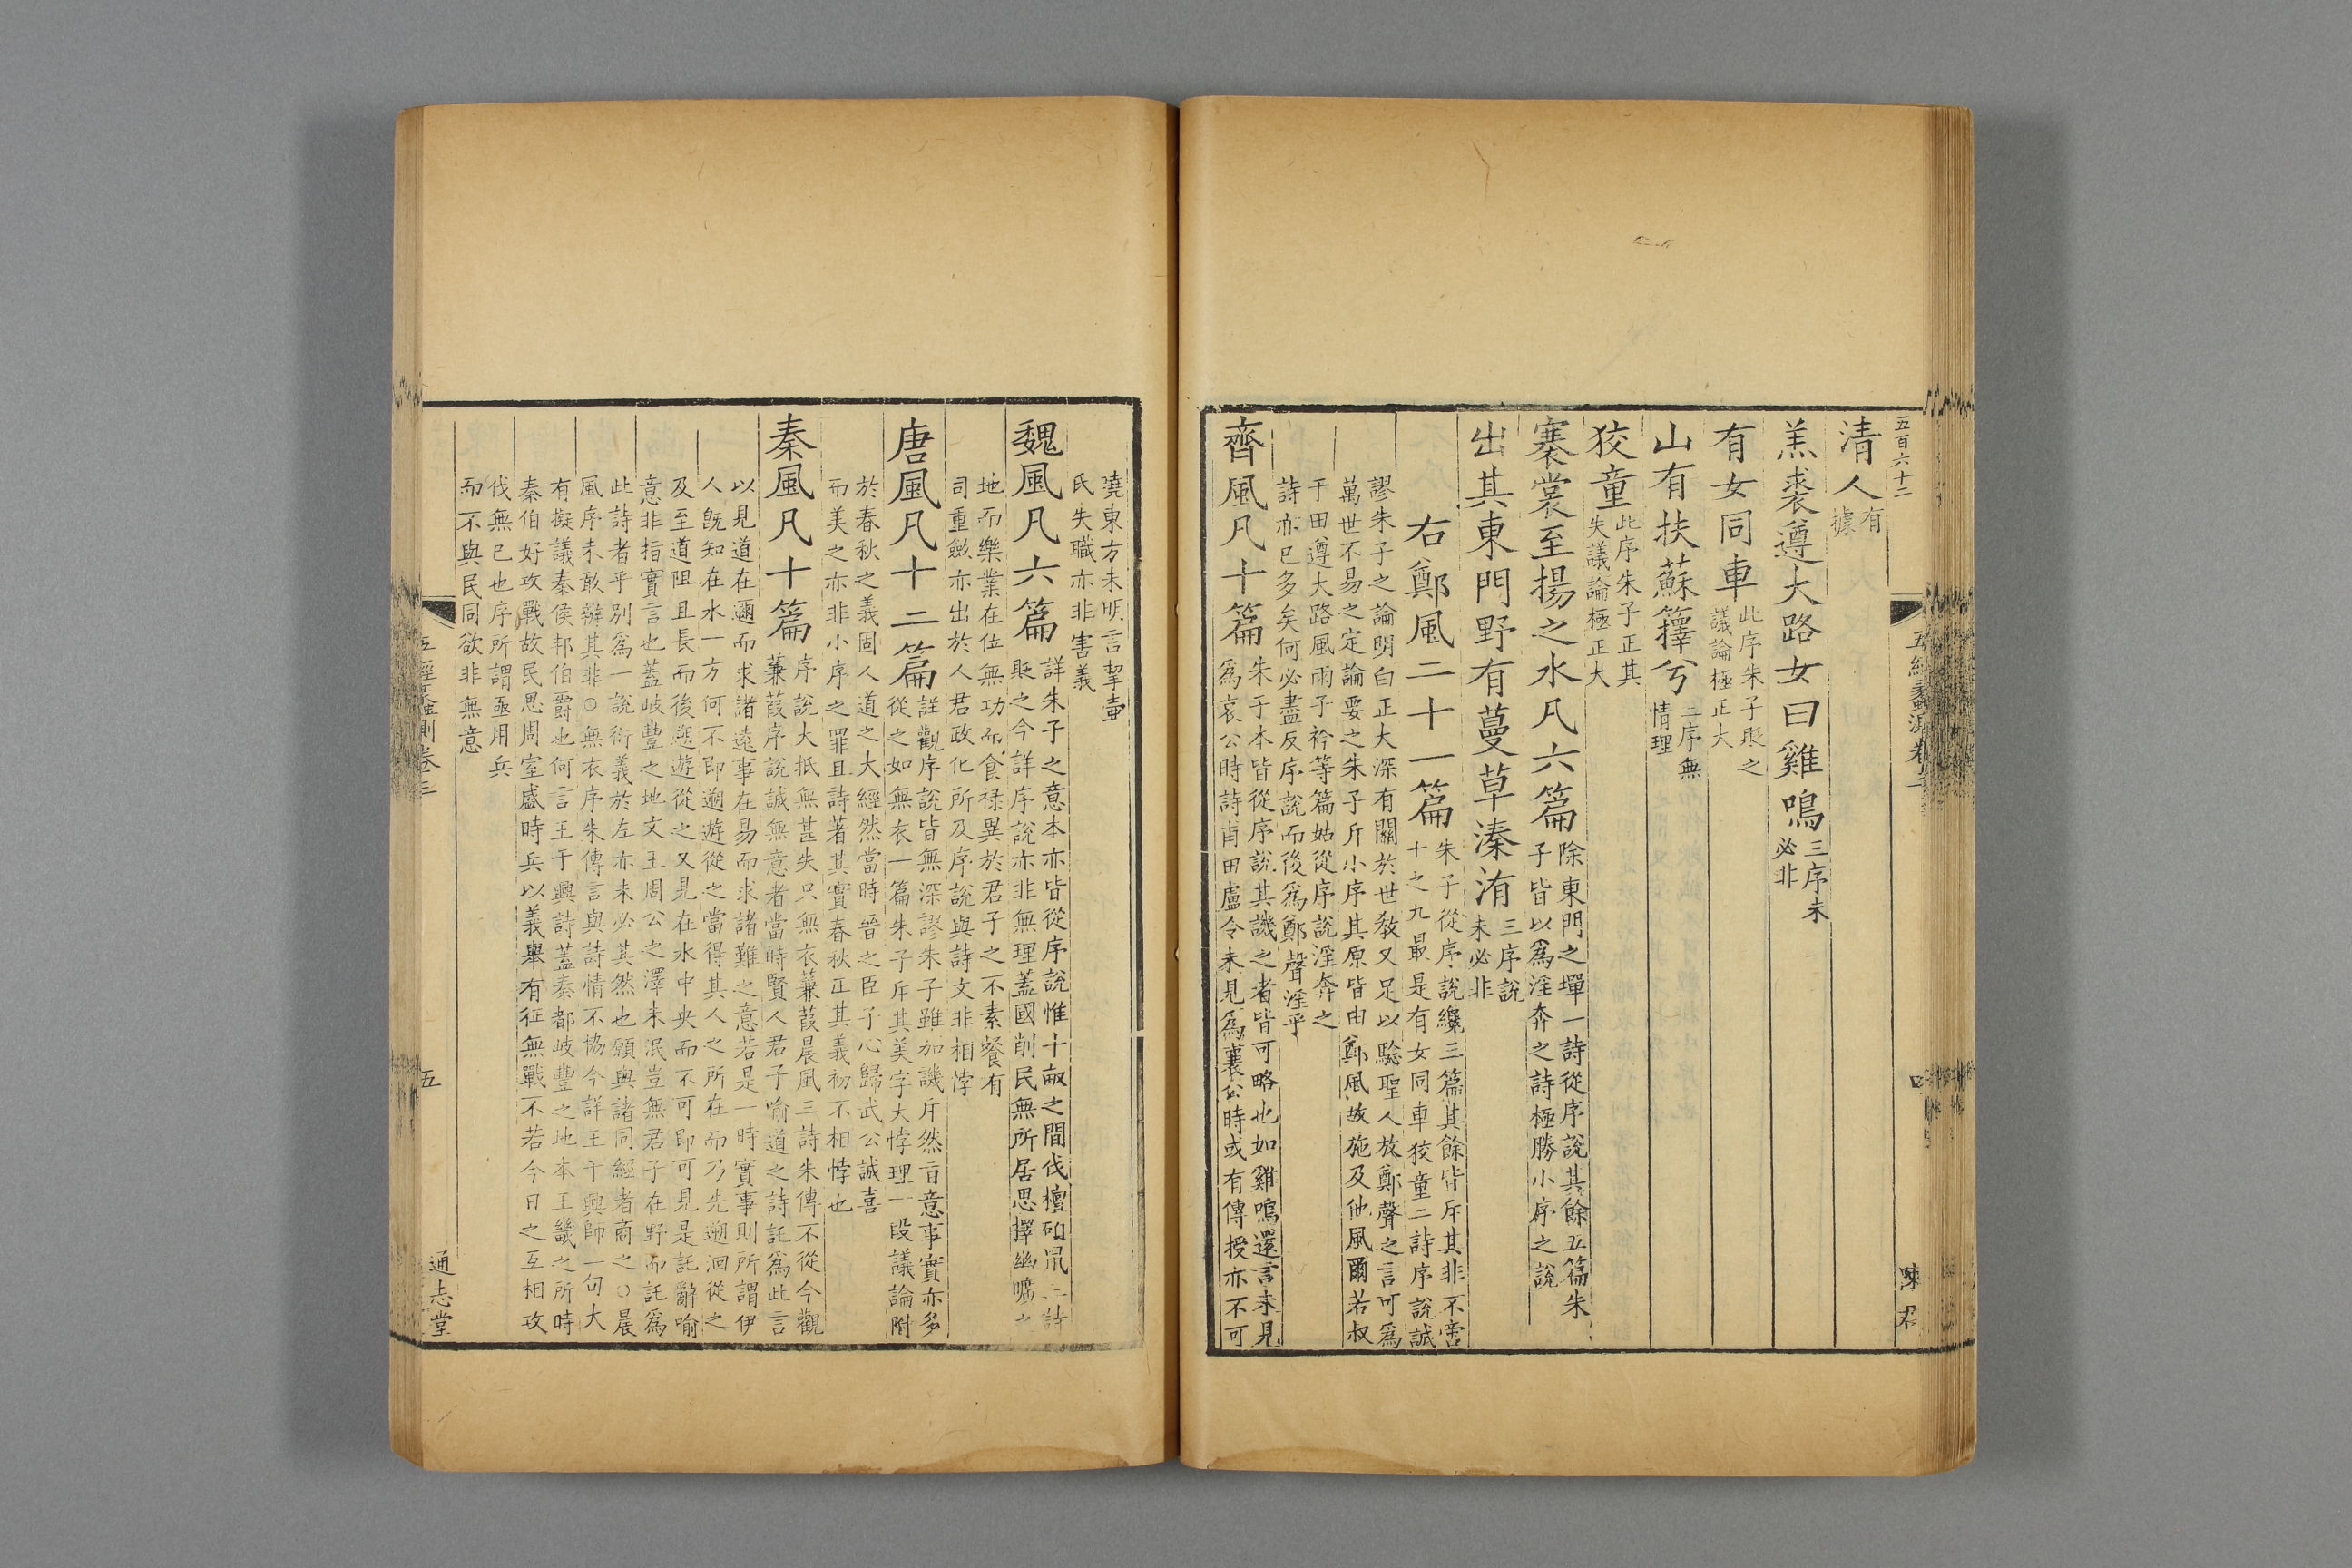 五百六十二
清人有據
羔裘遵大路女曰雞鳴三序未必非
有女同車此序朱子取之議論極正大
山有扶蘇蘀兮二序無情理
狡童此序朱子正其失議論極正大
褰裳至揚之水凡六篇除東門之墠一詩從序說其餘五篇朱子皆以爲淫奔之詩極勝小序之說
出其東門野有蔓草溱洧三序說未必非
右鄭風二十一篇朱子從序說纔三篇其餘皆斥其非不啻十之九最是有女同車狡童二詩序說誠
謬朱子之論明白正大深有關於世敎又足以騐聖人放鄭聲之言可爲
萬世不易之定論要之朱子斥小序其原皆由鄭風故施及他風爾若叔
于田遵大路風雨子衿等篇姑從序說淫奔之
詩亦已多矣何必盡反序說而後爲鄭聲淫乎
齊風凡十一篇朱子本皆從序說其譏之者皆可略也如雞鳴還言未見爲哀公時詩甫田盧令未見爲襄公時或有傳授亦不可
五經蠡測卷三
四
陳君
曉東方未明言挈壷
氏失職亦非害義
魏風凡六篇詳朱子之意本亦皆從序說惟十畝之間伐檀碩鼠三詩駁之今詳序說亦非無理蓋國削民無所居思擇幽曠之
地而樂業在位無功而食祿異於君子之不素餐有
司重斂亦出於人君政化所及序說與詩文非相悖
唐風凡十二篇詳觀序說皆無深謬朱子雖加譏斥然旨意事實亦多從之如無衣一篇朱子斥其美字大悖理一段議論附
於春秋之義固人道之大經然當時晉之臣子心歸武公誠喜
而美之亦非小序之罪且詩著其實春秋正其義初不相悖也
秦風凡十篇序說大抵無甚失只無衣蒹葭晨風三詩朱傳不從今觀蒹葭序說誠無意者當時賢人君子喻道之詩託爲此言
以見道在邇而求諸遠事在易而求諸難之意若是一時實事則所謂伊
人旣知在水一方何不即遡遊從之當得其人之所在而乃先遡洄從之
及至道阻且長而後遡遊從之又見在水中央而不可即可見是託辭喻
意非指實言也蓋岐豐之地文王周公之澤未泯豈無君子在野而託爲
此詩者乎別爲一說衍義於左亦未必其然也願與諸同經者商之○晨
風序未敢辨其非○無衣序朱傳言與詩情不協今詳王于興師一句大
有擬議秦侯邦伯爵也何言王于興詩蓋秦都岐豐之地本王畿之所時
秦伯好攻戰故民思周室盛時兵以義舉有征無戰不若今日之互相攻
伐無已也序所謂亟用兵
而不與民同欲非無意
五經蠡測卷三
五
通志堂